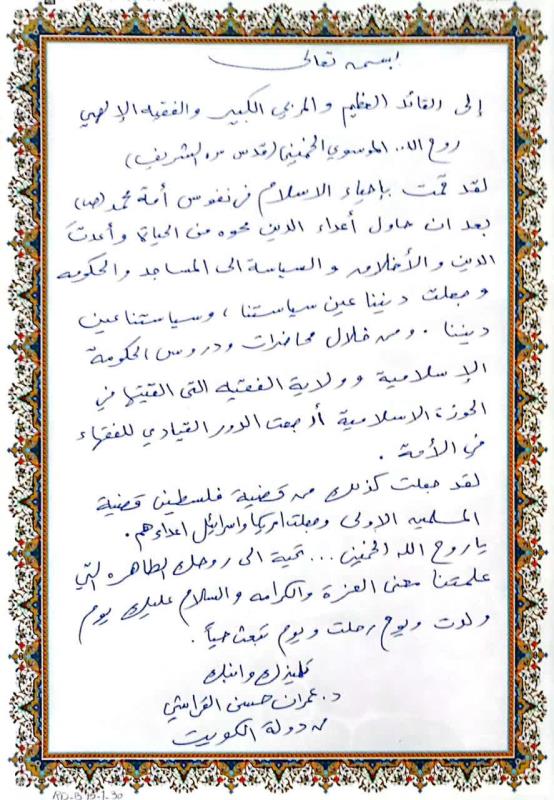 بسمه تعالى
إلى القائد العظيم والمربي الكبير والفقيه الإلهي
روح الله الموسوي الخميني (قدس سره الشريف)
لقد قمت بإحياء الاسلام في نفوس أمة محمد (ص)
بعد ان حاول أعداء الدين محوه من الحياة وأعدتَ
الدين والأخلاق والسياسة الى المساجد والحكومه
وجعلت ديننا عين سياستنا، وسياستنا عين
ديننا. ومن خلال محاضرات ودروس الحكومة
الإسلامية وولاية الفقيه التي القيتها في
الحوزة الاسلامية أرجعت الدور القيادي للفقهاء
في الأمة.
لقد جعلت كذلك من قضية فلسطين قضية
المسلمين الاولى وجعلت امريكا واسرائيل اعداءهم.
ياروح الله الخميني... تحية الى روحك الطاهره التي
علمتنا معنى العزة والكرامه والسلام عليك يوم
ولدت ويوم رحلت ويوم تبعث حياً.
تلميذك وابنك
د. عمران حسن القراشي
من دولة الكويت